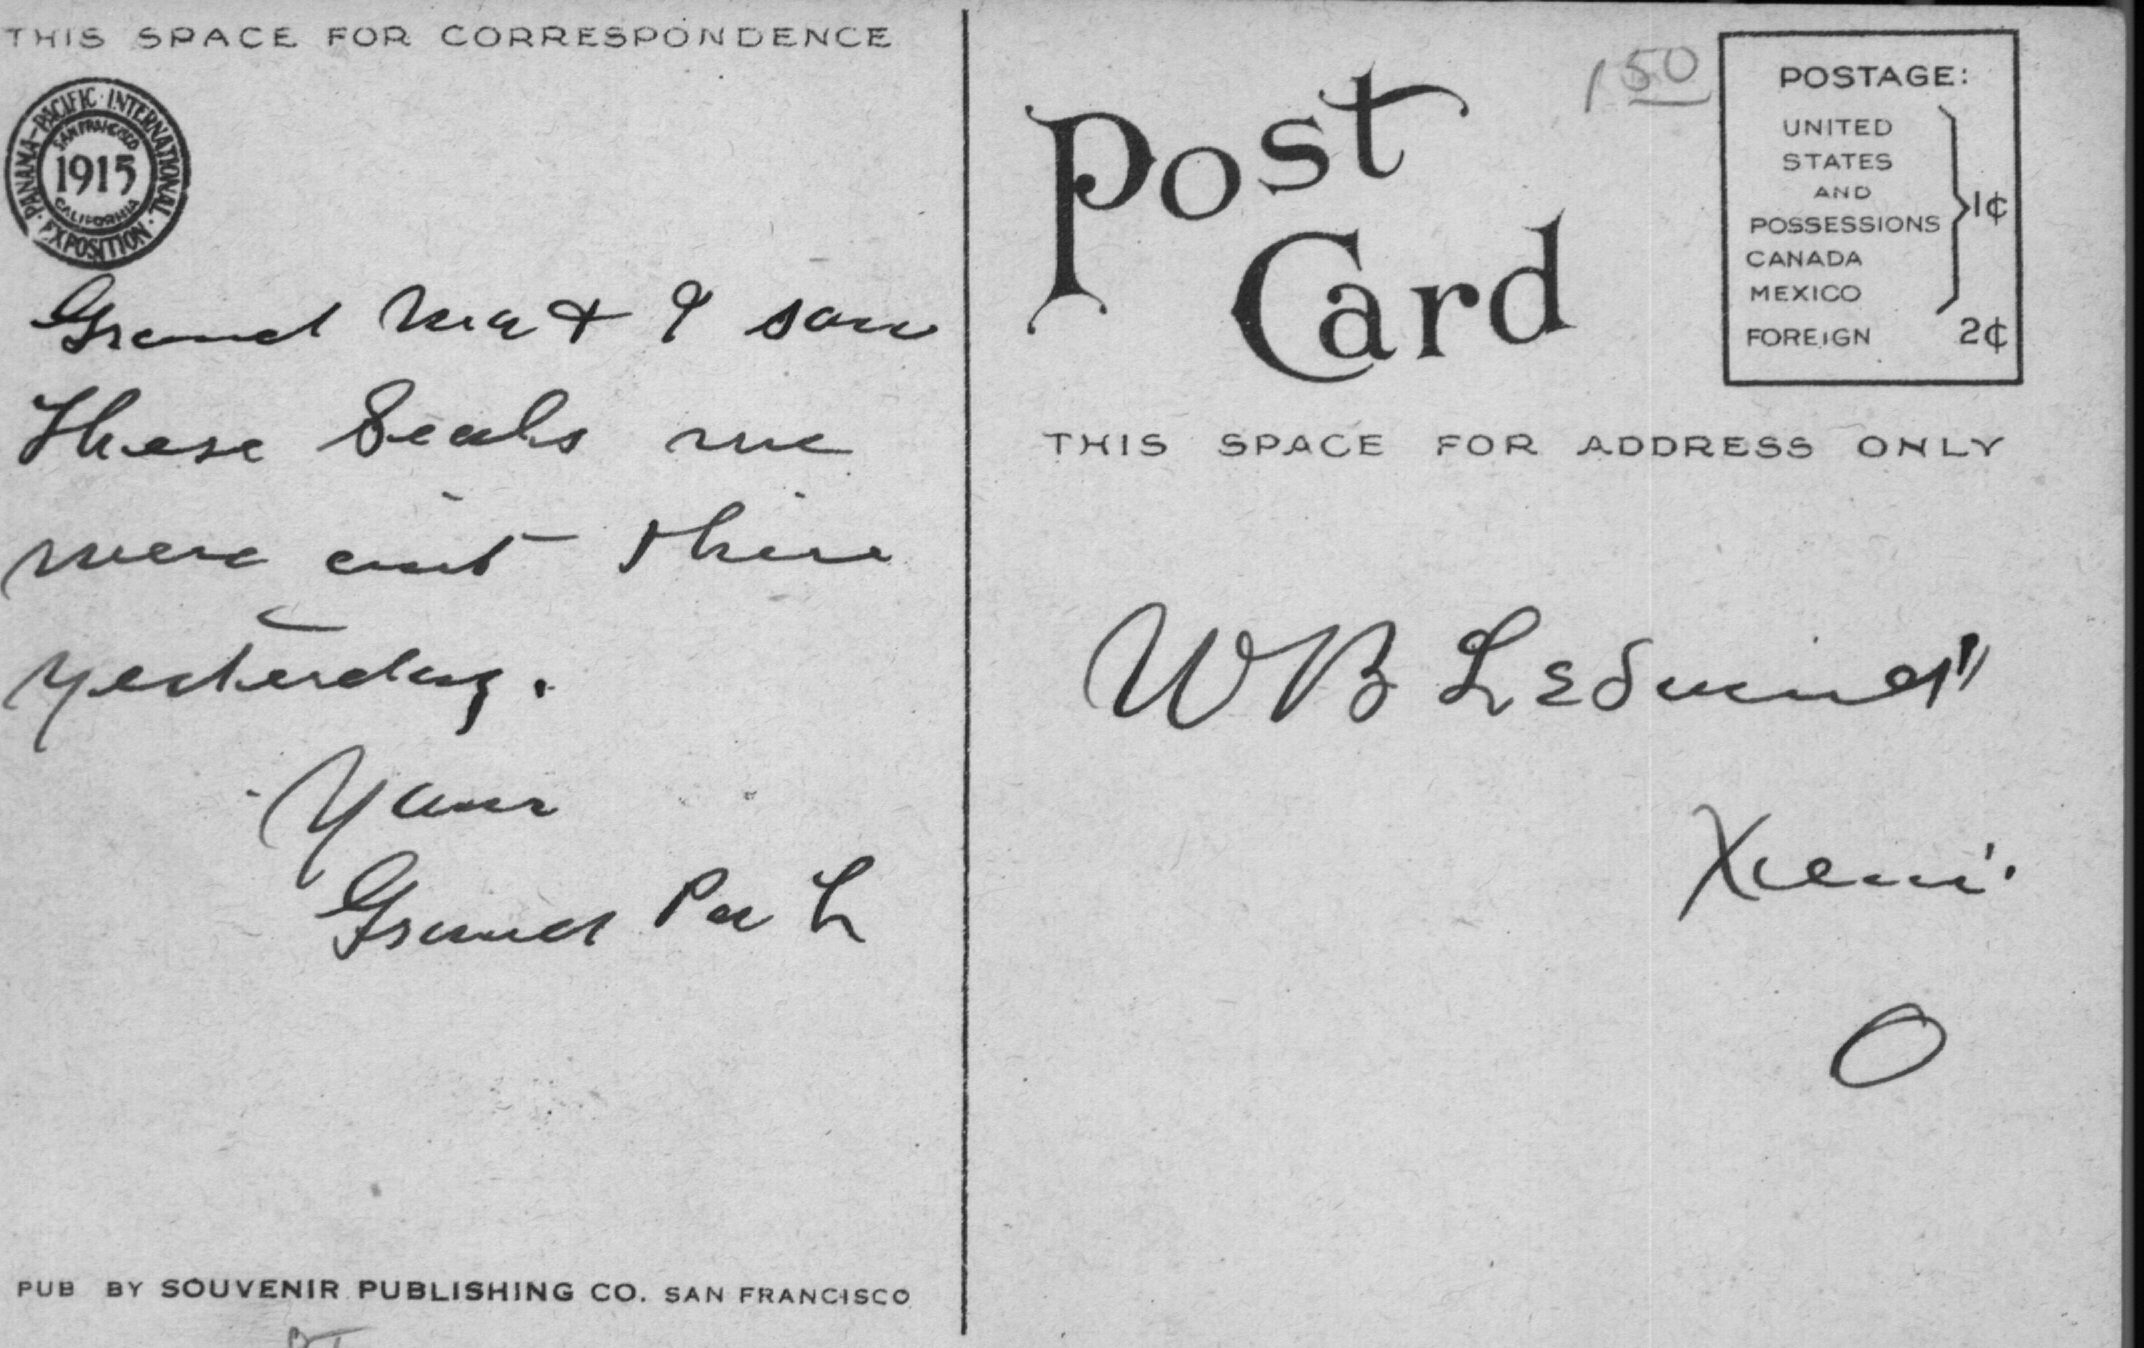 THIS SPACE FOR CORRESPONDENCE
PANAMA-PACIFIC INTERNATIONAL EXPOSITION
SAN FRANCISCO
1915
CALIFORNIA
Grand Ma + I saw
these Seals we
were out there
yesterday.
Your
Grand Pa L
PUB BY SOUVENIR PUBLISHING CO. SAN FRANCISCO
Post
Card
150
POSTAGE:
UNITED
STATES
AND
POSSESSIONS
CANADA
MEXICO
1¢
FOREIGN 2¢
THIS SPACE FOR ADDRESS ONLY
W B
O